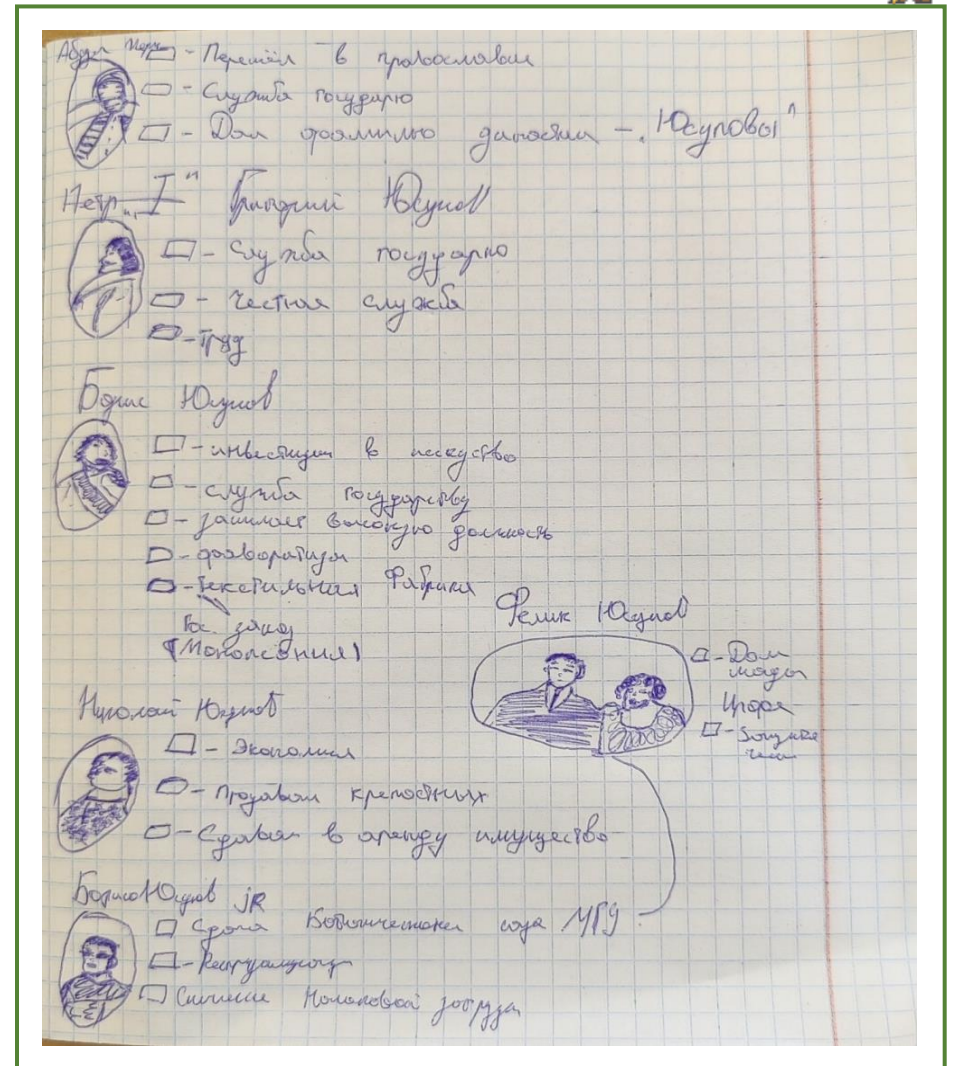 Абдул
- Перешёл в православие
- Служба государю
- Дал фамилию династии - "Юсуповы"
Петр "I" Григорий Юсупов
- Служба государю
- Честная служба
- Труд
Борис Юсупов
- инвестиции в искусство
- служба государству
- занимает высокую должность
- фаворитизм
- Текстильная Фабрика
Гос. заказ
(Монополия)
Феликс Юсупов
- Дом
моды
Ирфе
Николай Юсупов
- Экономия
- Продавал крепостных
- Сдавал в аренду имущество
Борис Юсупов jR
Сдача Ботанического сада МГУ
Снижение Налоговой